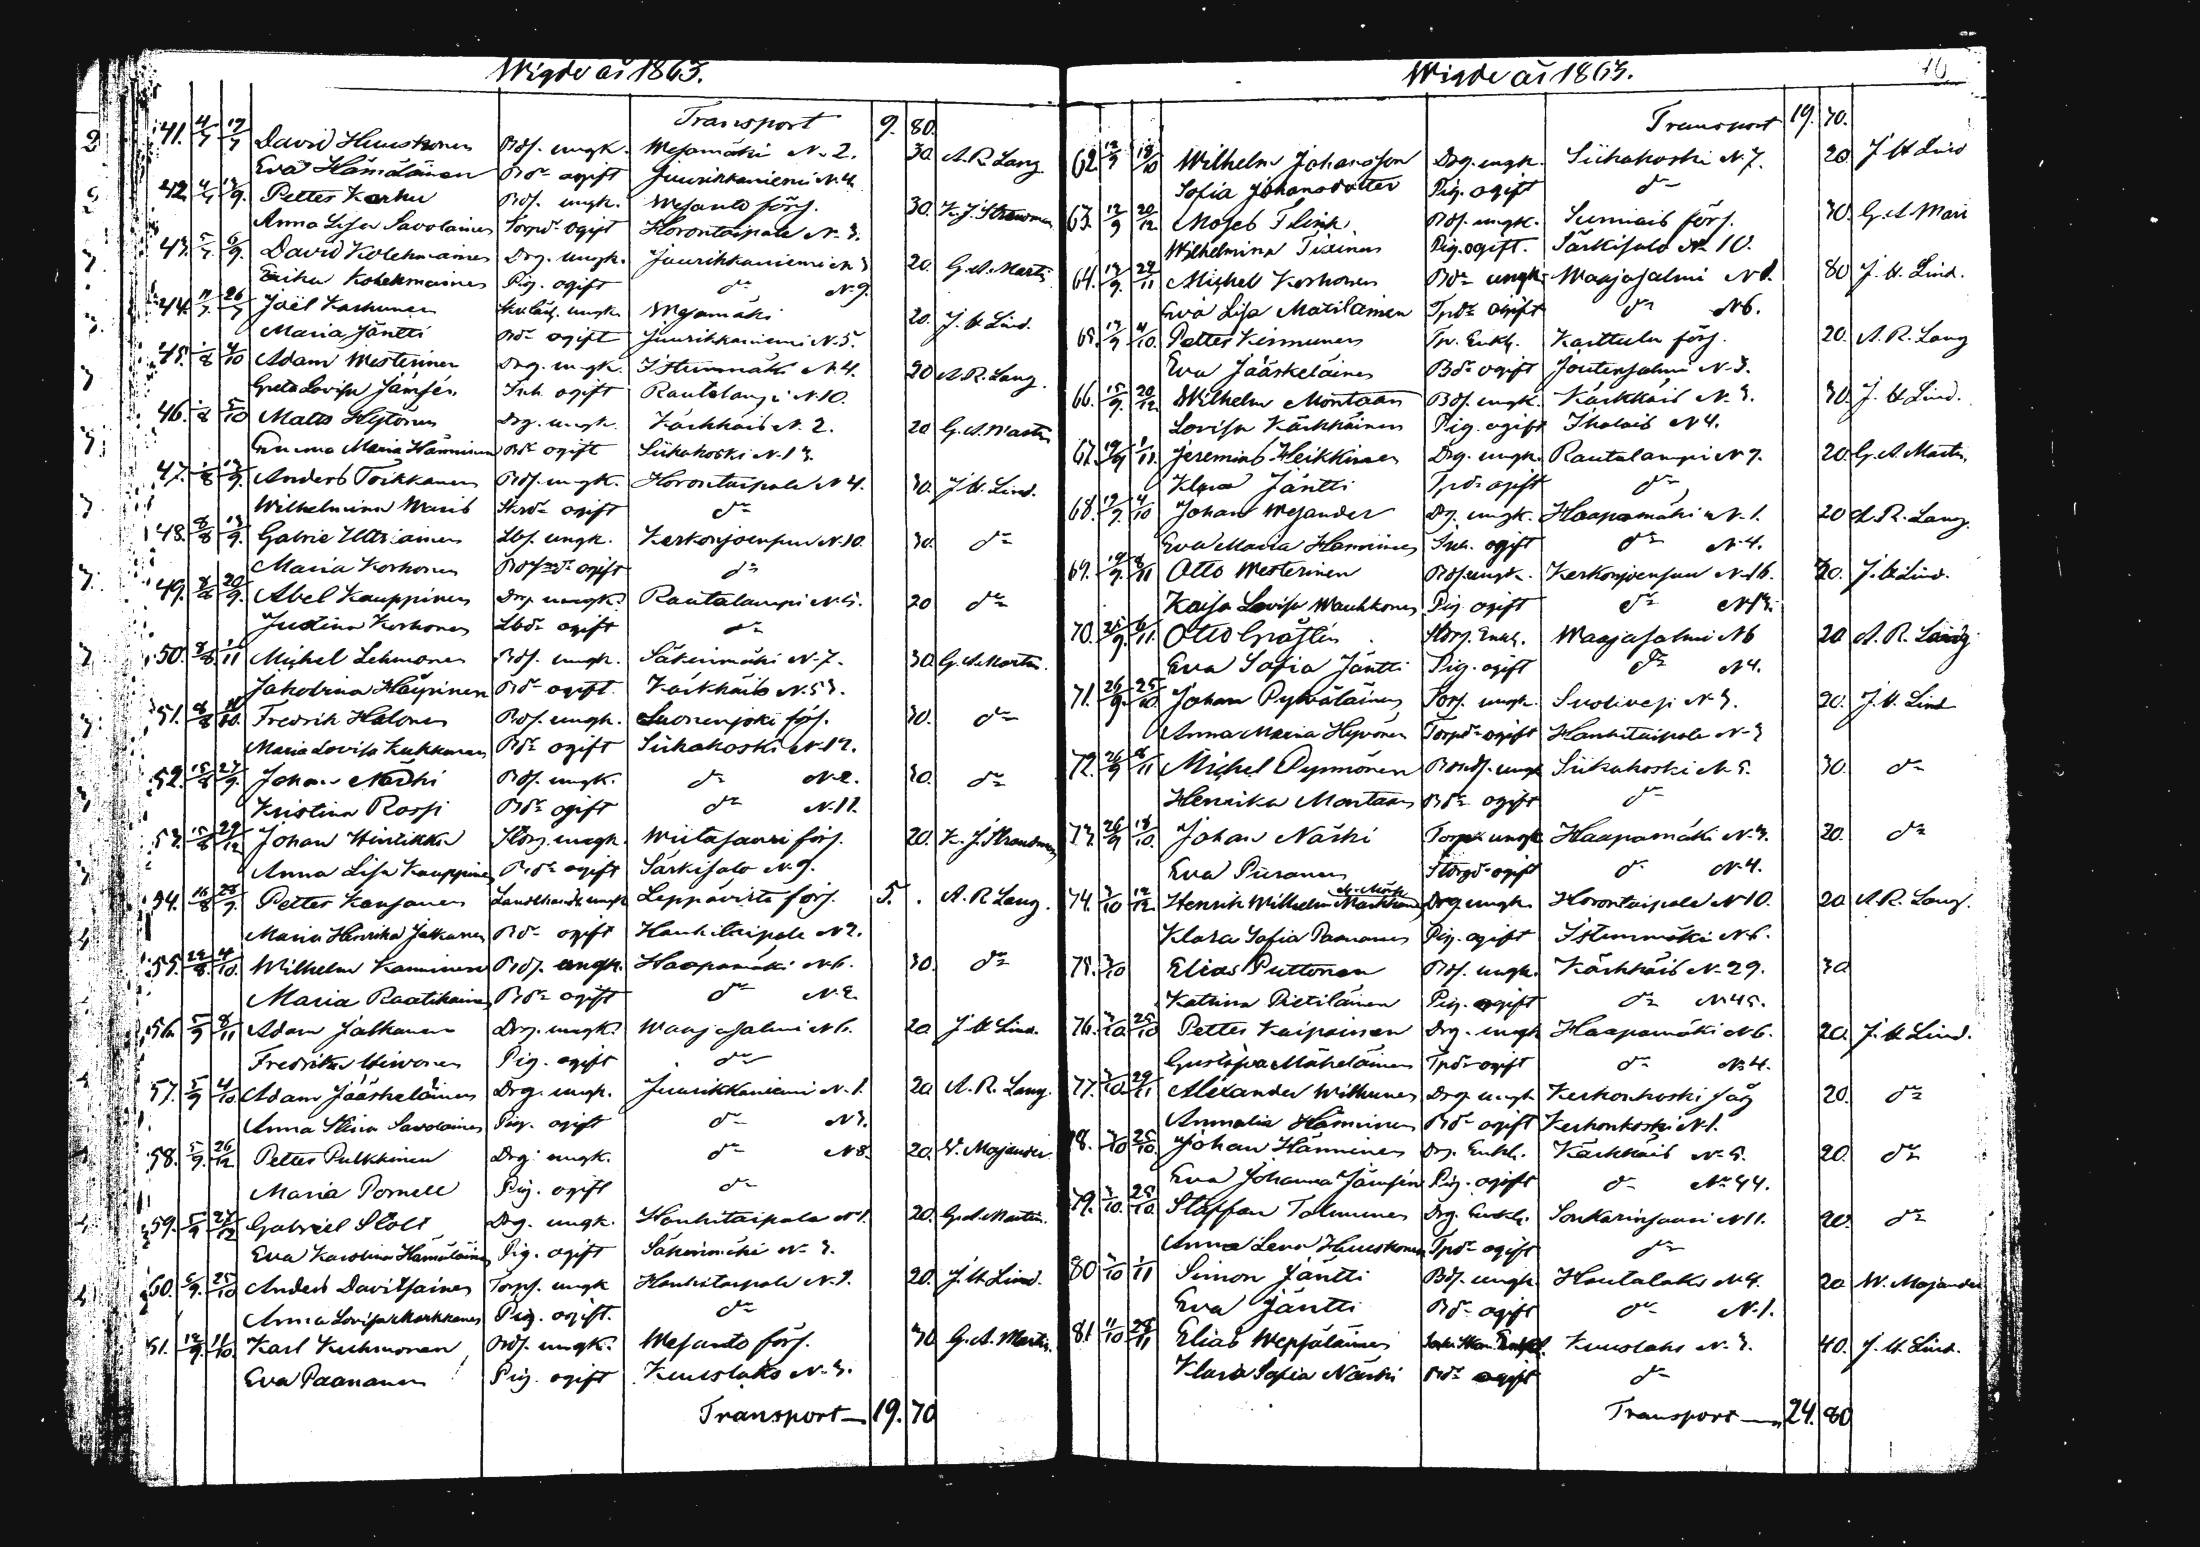 Wigde år 1863.
Transport 9. 80.
41. 4/7 David Huuskonen Bdf. ungk. Wesamäki N. 2. 30 A. R. Lang
Eva Hämäläinen Bdr ogift Juurikkaniemi N. 4.
42. 4/7 Petter Karhu Bdf. ungk. Wesanto förs. 30. K. J. Strandman
Anna Lisa Savolainen Torpdr ogift Horontaipale N. 3.
43. 5/7 6/9. David Kolehmainen Drg. ungk. Juurikkaniemi N. 3 20. G. A. Martin
Erika Kolehmainen Pig. ogift dr N. 9.
44. 11/7 26/7 Joël Korhonen ungk. Wesamäki 20. J. U. Lind.
Maria Jäntti Bdr ogift Juurikkaniemi N. 5.
45. 4/10 Adam Westerinen Drg. ungk. Istunmäki N. 4. 20 A. R. Lang.
Greta Lovisa Jämsén Inh. ogift Rautalampi N. 10.
46. 5/10 Matts Hytönen Drg. ungk. Kärkkäis N. 2. 20 G. A. Martin
Emma Maria Hänninen Bdr ogift Siikakoski N. 13.
47. Anders Toikkanen Bdf. ungk. Horontaipale N. 4. 30. J. U. Lind.
Wilhelmina Waris ogift dr
48. 8/8 13/9. Gabriel Ukkonen Lbf. ungk. Kerkonjoensuu N. 10. 30. dr
Maria Korhonen ogift dr
49. 8/8 20/9. Abel Kauppinen Drg. ungk. Rautalampi N. 5. 20 dr
Justina Korhonen Lbdr ogift dr
50. 8/8 1/11 Michel Lehmonen Bdf. ungk. Säkinmäki N. 7. 30. G. A. Martin.
Jakobina Häyrinen Bdr ogift. Kärkkäis N. 53.
51. 8/8 Fredrik Halonen Bdf. ungk. Suonenjoki förs. 30. dr
Maria Lovisa Kukkonen Bdr ogift Siikakoski N. 12.
52. 15/8 27/9. Johan Närhi Bdf. ungk. dr N. 2. 30. dr
Kristina Rossi Bdr ogift dr N. 11.
53. 15/8 29/12 Johan Hintikka ungk. Wiitasaari förs. 20. K. J. Strandman
Anna Lisa Kauppinen Bdr ogift Särkisalo N. 9.
54. 16/8 Petter Kansanen ungk Leppävirta förs. 5. . A. R. Lang.
Maria Henrika Jalkanen Bdr ogift Hankitaipale N. 2.
55. 22/8 4/10. Wilhelm Kanninen Bdf. ungk. Haapamäki N. 6. 30. dr
Maria Raatikainen Bdr ogift dr N. 2.
56. 5/9 8/11 Adam Jalkanen Drg. ungk. Waajasalmi N. 6. 20 J. U. Lind.
Fredrika Hiwonen Pig. ogift dr
57. 5/9 4/10 Adam Jääskeläinen Drg. ungk. Juurikkaniemi N. 1. 20 A. R. Lang.
Anna Stina Savolainen Pig. ogift dr N. 3.
58. 5/9. 26/12 Petter Pulkkinen Drg. ungk. dr N. 8. 20. W. Majander
Maria Pornell Pig. ogift dr
59. 5/9 27/12 Gabriel Stolt Drg. ungk. Hankitaipale N. 1. 20. G. A. Martin.
Eva Karolina Hämäläinen Pig. ogift Säkinmäki N. 3.
60. 6/9. 25/10 Anders Davitsainen Torpf. ungk Hankitaipale N. 9. 20. J. U. Lind.
Anna Lovisa Markkanen Pig. ogift. dr
61. 12/9. 11/10. Karl Kuhmonen Bdf. ungk. Wesanto förs. 30 G. A. Martin.
Eva Paananen Pig. ogift Kuuslaks N. 3.
Transport 19. 70
Wigde år 1863.
Transport 19. 70.
62. 12/9 18/10 Wilhelm Johansson Drg. ungk. Siikakoski N. 7. 20 J. U. Lind
Sofia Johansdotter Pig. ogift dr
63. 12/9 20/12 Moses Flink Bdf. ungk. Sumiais förs. 30. G. A. Mart
Wilhelmina Tiainen Pig. ogift. Särkisalo N. 10.
64. 13/9. 22/11 Michel Korhonen Bdr ungk. Waajasalmi N. 1. 80 J. U. Lind.
Eva Lisa Matilainen Tpdr ogift dr N. 6.
65. 13/9 4/10. Petter Kinnunen Tp. Enkl. Karttula förs. 20. A. R. Lang
Eva Jääskeläinen Bdr ogift Joutensalmi N. 3.
66. 15/9. 20/12 Wilhelm Montaan Bdf. ungk. Kärkkäis N. 3. 30. J. U. Lind.
Lovisa Kärkkäinen Pig. ogift Ihalais N. 4.
67. 19/9 1/11. Jeremias Heikkinen Drg. ungk. Rautalampi N. 7. 20. G. A. Martin.
Klara Jäntti Tpdr ogift dr
68. 19/9. 4/10 Johan Wejander Drg. ungk. Haapamäki N. 1. 20 A. R. Lang.
Eva Maria Hänninen Inh. ogift dr N. 4.
69. 19/9. 8/11 Otto Westerinen Bdf. ungk. Kerkonjoensuu N. 16. 30. J. U. Lind.
Kaisa Lovisa Wauhkonen Pig. ogift dr
70. 25/9. 6/11 Otto Grästen Enkl. Waajasalmi N. 6 20 A. R. Lang.
Eva Sofia Jäntti Pig. ogift dr N. 4.
71. 26/9. 25/10 Johan Pylväläinen Torf. ungk. Suolivesi N. 3. 20. J. U. Lind
Anna Maria Hyvönen Torpdr ogift Hankitaipale N. 3
72. 26/9 8/11 Michel Pynnönen Bondf. ungk Siikakoski N. 5. 30. dr
Henrika Montaan Bdr ogift dr
73. 26/9 18/10. Johan Närhi Torpf. ungk Haapamäki N. 3. 20. dr
Eva Piiranen ogift dr N. 4.
74. 3/10 Henrik Wilhelm Markkanen Drg. ungk. Horontaipale N. 10. 20 A. R. Lang.
Klara Sofia Paananen Pig. ogift Istunmäki N. 6.
75. 3/10 Elias Puttonen Bdf. ungk. Kärkkäis N. 29. 30
Katrina Pietiläinen Pig. ogift dr N. 45.
76. 3/10 25/10 Petter Kaipainen Drg. ungk Haapamäki N. 6. 20. J. U. Lind.
Gustava Mäkeläinen Tpdr ogift dr N. 4.
77. 3/10 29/11 Alexander Wilhunen Drg. ungk Kerkonkoski såg 20. dr
Annalia Hänninen Bdr ogift Kerkonkoski N. 1.
78. 3/10 25/10. Johan Hänninen Drg. Enkl. Kärkkäis N. 5. 20. dr
Eva Johanna Jämsén Pig. ogift dr N. 44.
79. 3/10. 25/10 Staffan Tolmunen Drg. Enkl. Sonkarinsaari N. 11. 20. dr
Anna Lena Huuskonen Tpdr ogift dr
80 3/10 1/11 Simon Jäntti Bdf. ungk. Hautalaks N. 4. 20 W. Majander
Eva Jäntti Bdr ogift dr N. 1.
81. 11/10 Elias Wepsäläinen Kuuslaks N. 3. 40. J. U. Lind.
Klara Sofia Närhi Bdr ogift dr
Transport 24. 80